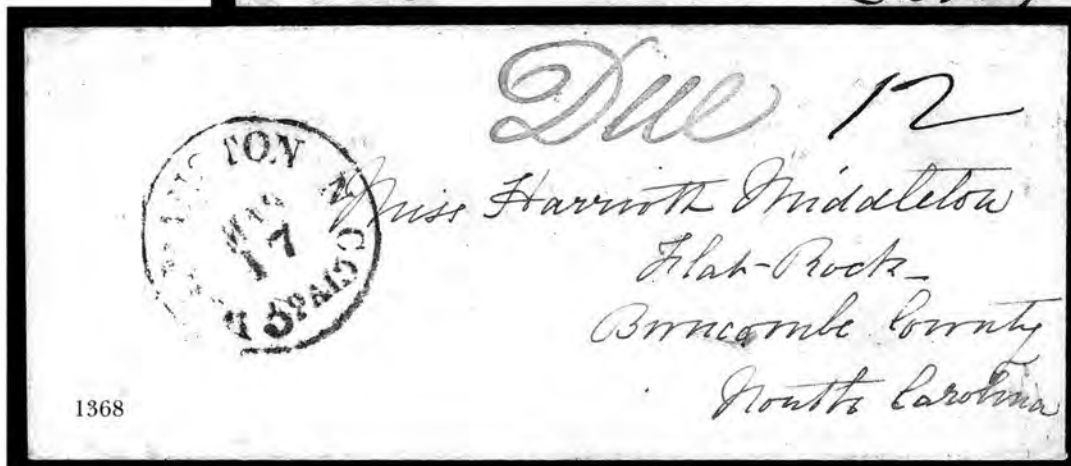 Due 12
TON N. C.
17
PAID
Miss Harriott Middleton
Flat-Rock-
Buncombe County
North Carolina
1368